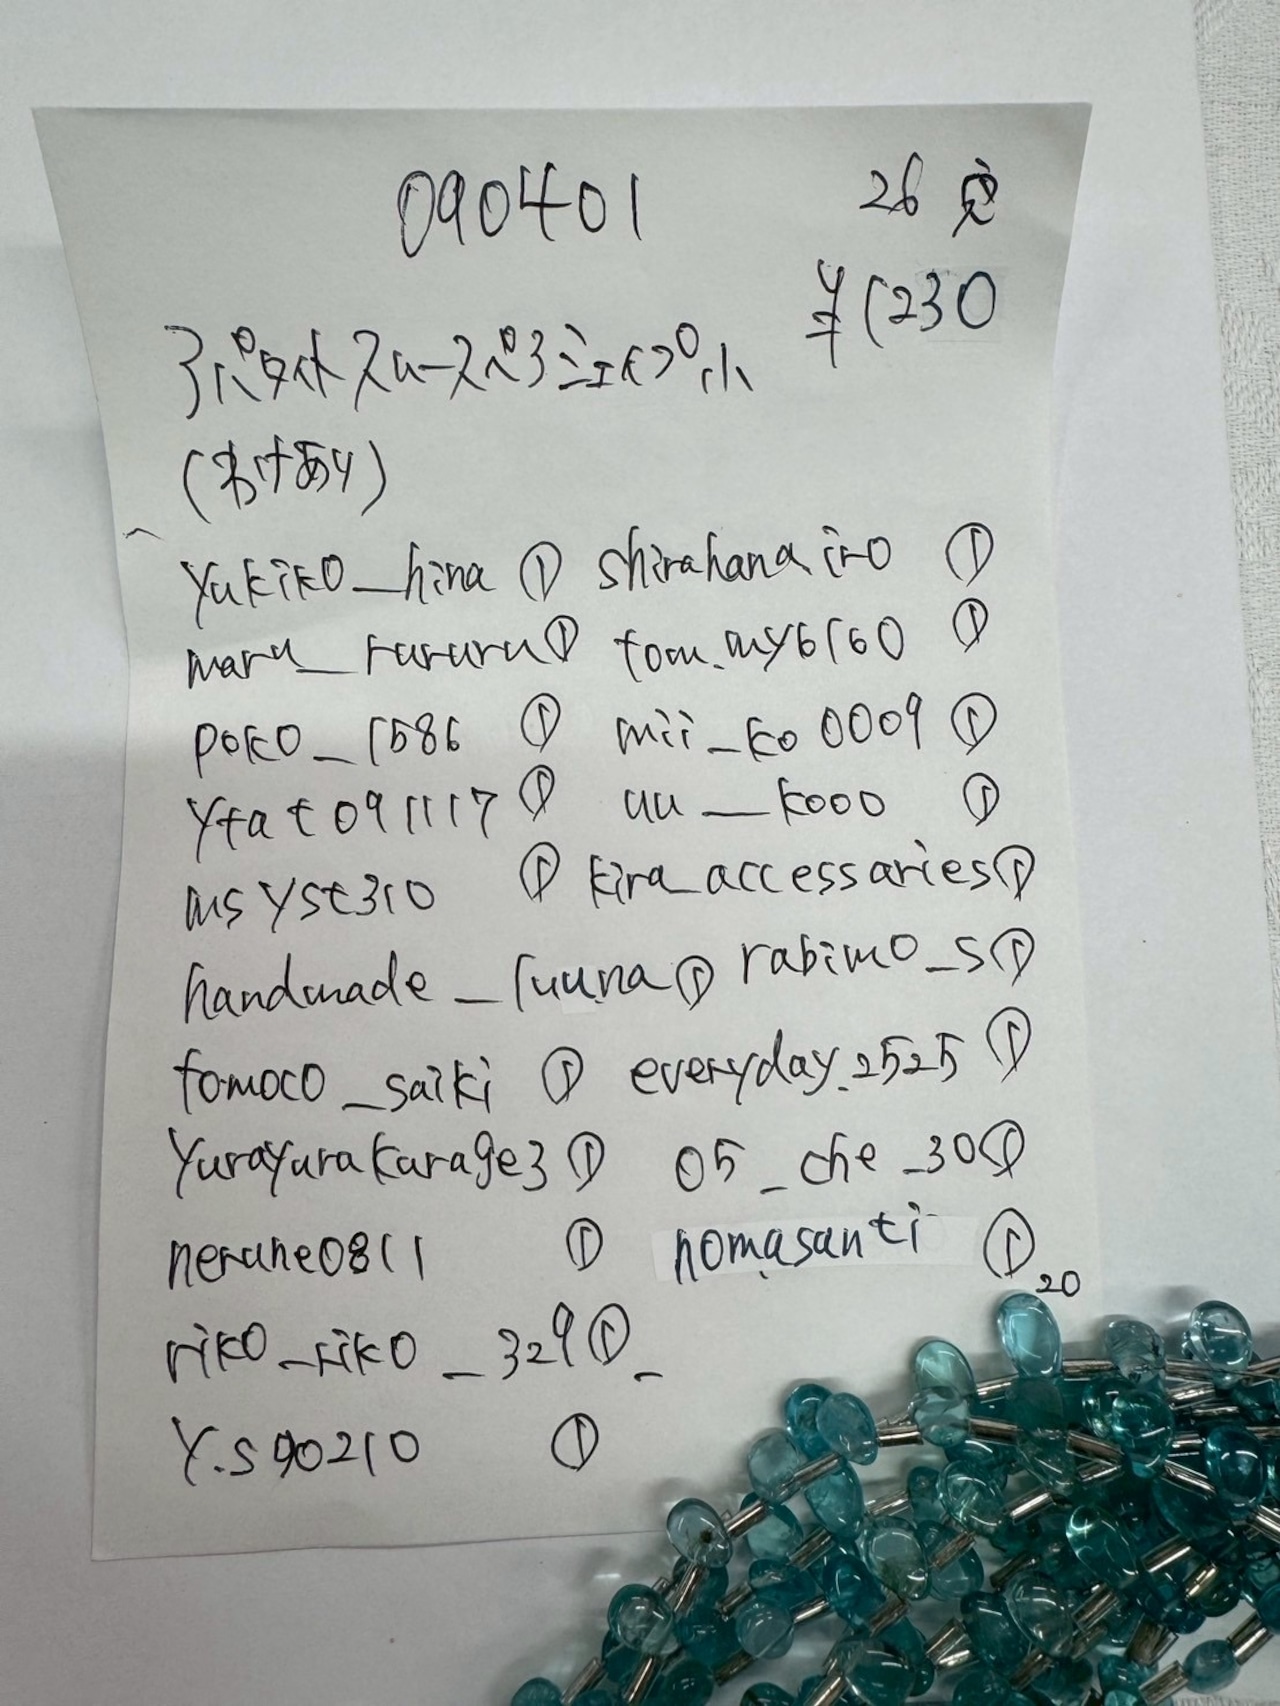 090401 26
¥1230
アパタイトスムースペアシェイプ 小
(わけあり)
yukiko_hina ① shirahanairo ①
maru_rururu ① tom.my6160 ①
poko_1586 ① mii_ko0009 ①
ytat091117 ① uu__kooo ①
msyst310 ① kira_accessaries ①
handmade_luuna ① rabimo_s ①
tomoco_saiki ① everyday.2525 ①
yurayurakarage3 ① 05_che_30 ①
nerune0811 ① nomasanti ① 20
riko_riko_329 ①
y.s90210 ①